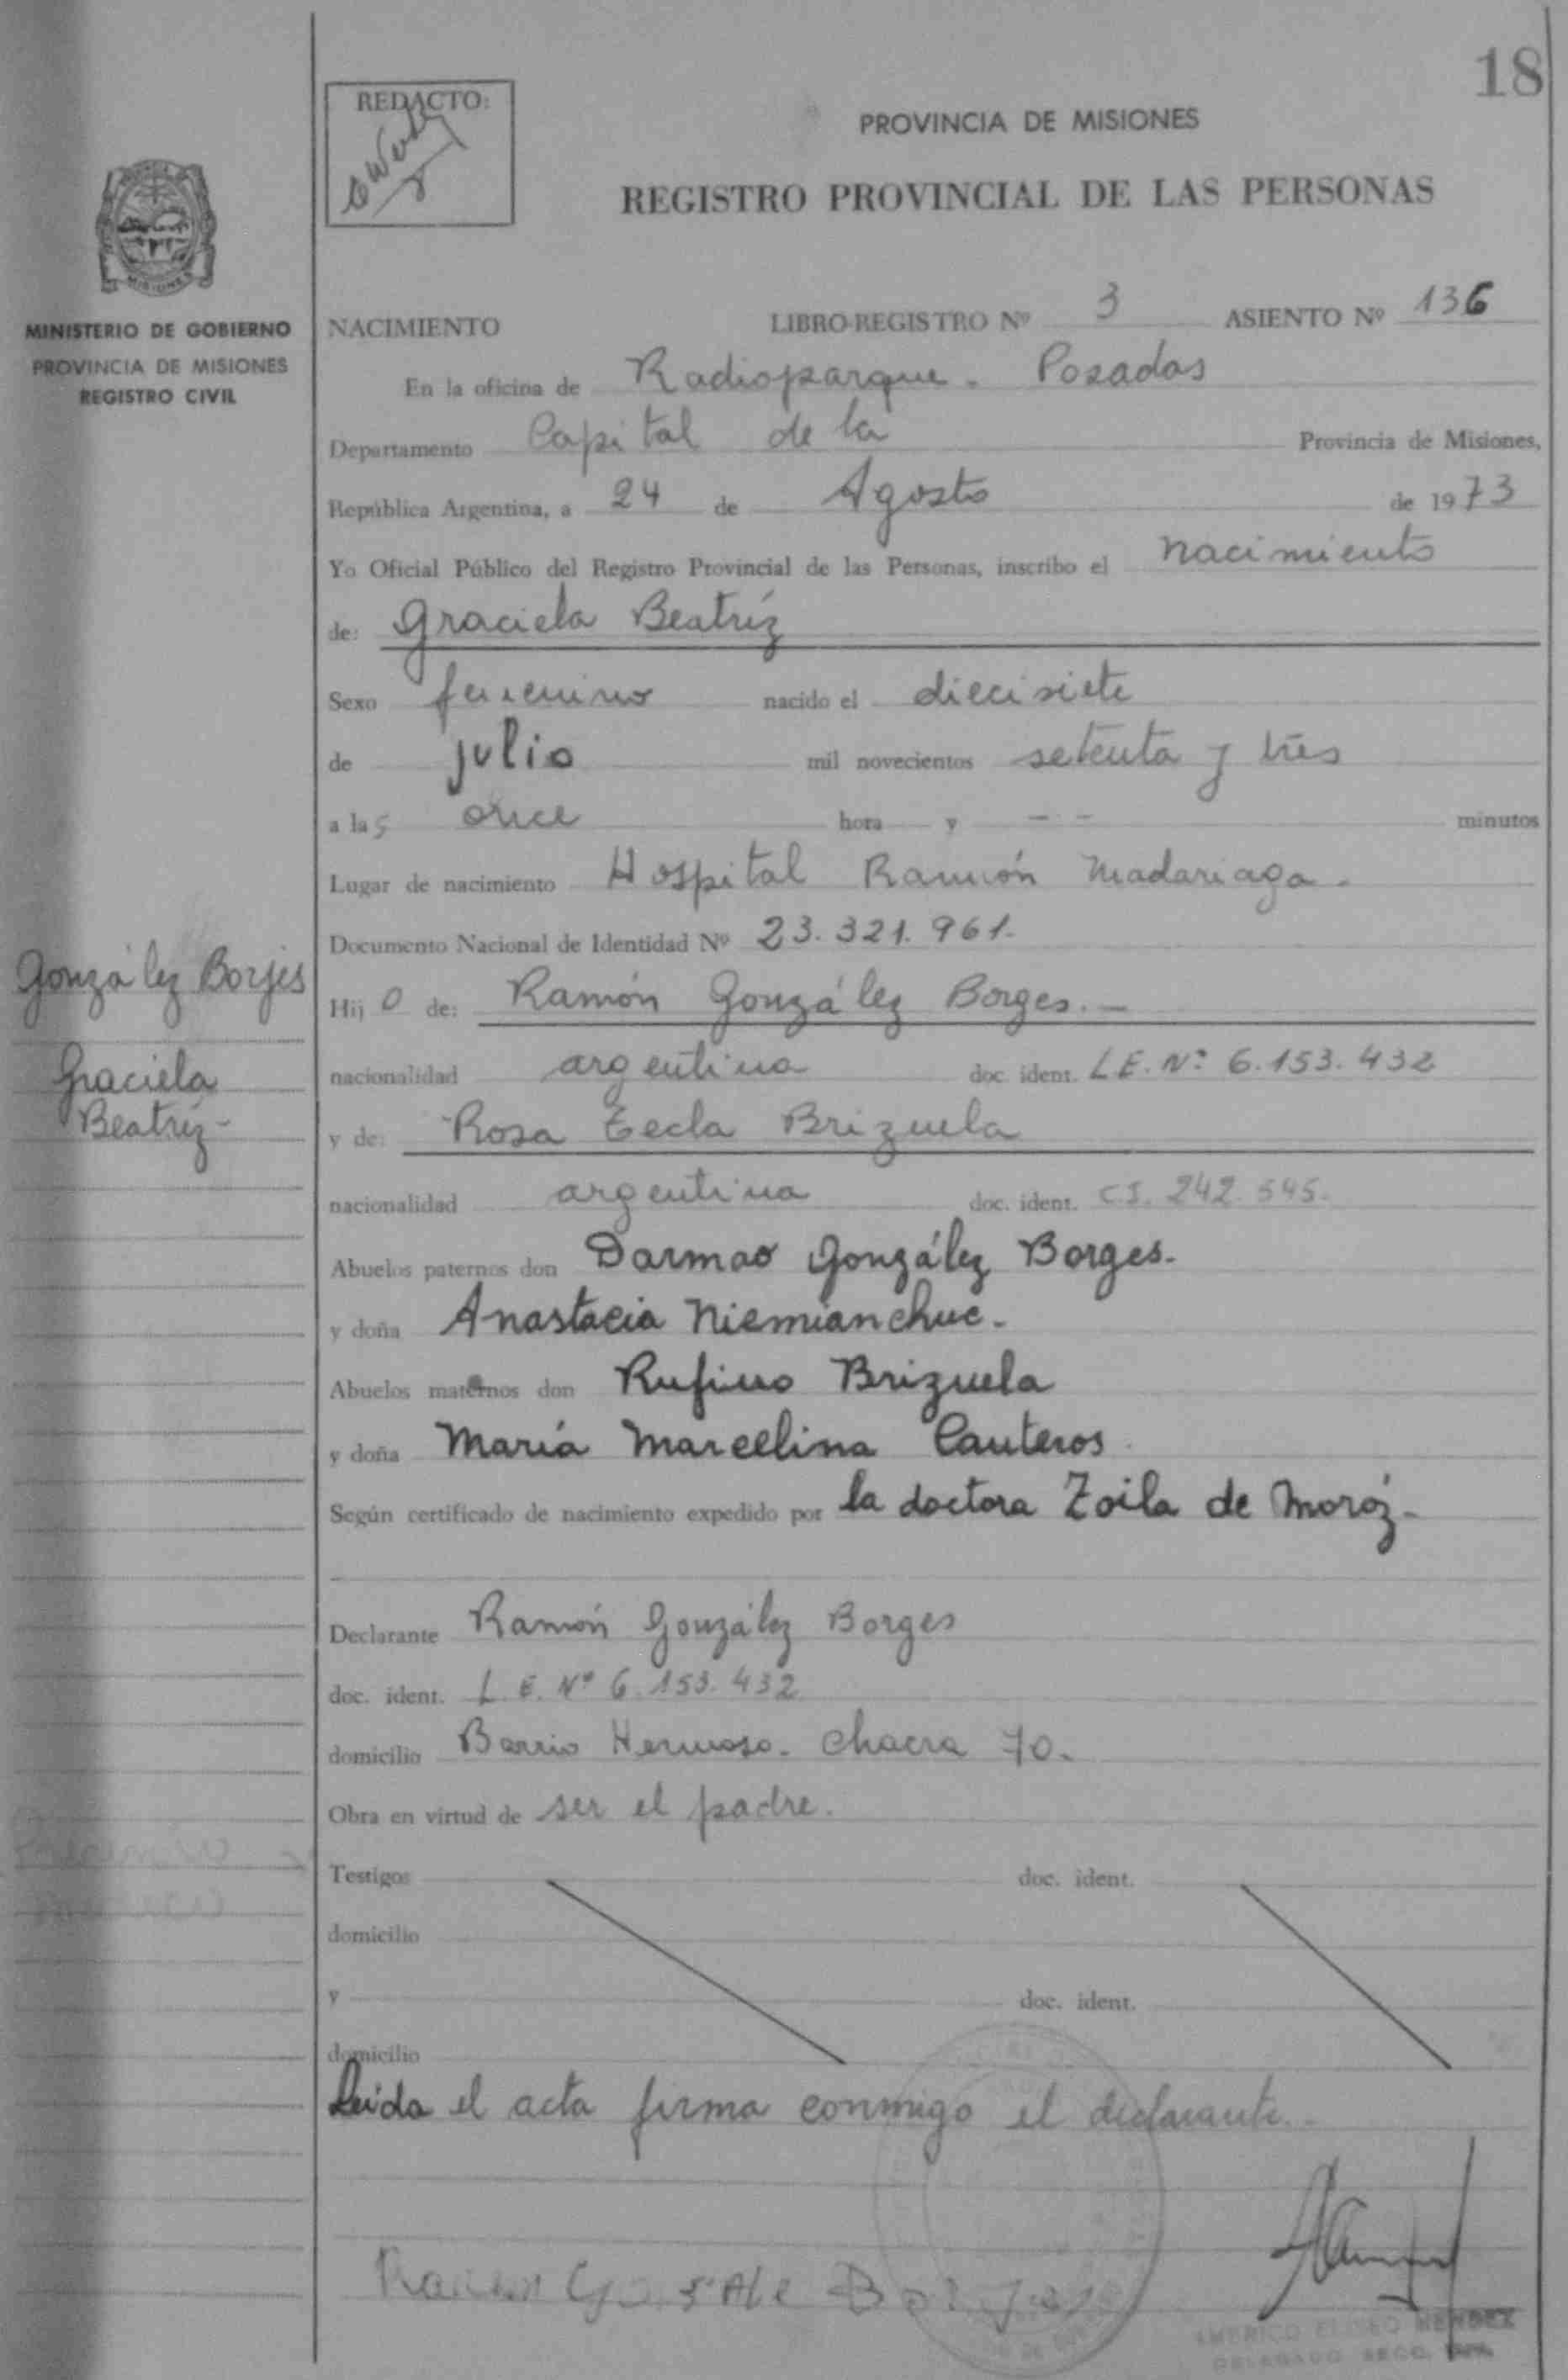 18
REDACTO:
PROVINCIA DE MISIONES
REGISTRO PROVINCIAL DE LAS PERSONAS
MISIONES
MINISTERIO DE GOBIERNO
PROVINCIA DE MISIONES
REGISTRO CIVIL
NACIMIENTO LIBRO-REGISTRO Nº 3 ASIENTO Nº 136
En la oficina de Radioparque. Posadas
Departamento Capital de la Provincia de Misiones,
República Argentina, a 24 de Agosto de 1973
Yo Oficial Público del Registro Provincial de las Personas, inscribo el nacimiento
de: Graciela Beatríz
Sexo femenino nacido el diecisiete
de julio mil novecientos setenta y tres
a las once hora y -- minutos
Lugar de nacimiento Hospital Ramón Madariaga.
Documento Nacional de Identidad Nº 23.321.961.
González Borjes
Graciela
Beatríz-
Hijo de: Ramón González Borges.-
nacionalidad argentina doc. ident. L.E. Nº 6.153.432
y de: Rosa Tecla Brizuela
nacionalidad argentina doc. ident. C.I. 242.545.
Abuelos paternos don Darmao González Borges-
y doña Anastacia Niemianchuc-
Abuelos maternos don Rufino Brizuela
y doña María Marcelina Cauteros
Según certificado de nacimiento expedido por la doctora Zoila de Moróz-
Declarante Ramón González Borges
doc. ident. L.E. Nº 6.153.432
domicilio Barrio Hermoso. Chacra 70.
Obra en virtud de ser el padre.
Testigos doc. ident.
domicilio
y doc. ident.
domicilio
Leída el acta firma conmigo el declarante.-
AMERICO ELISEO MENDEZ
DELEGADO